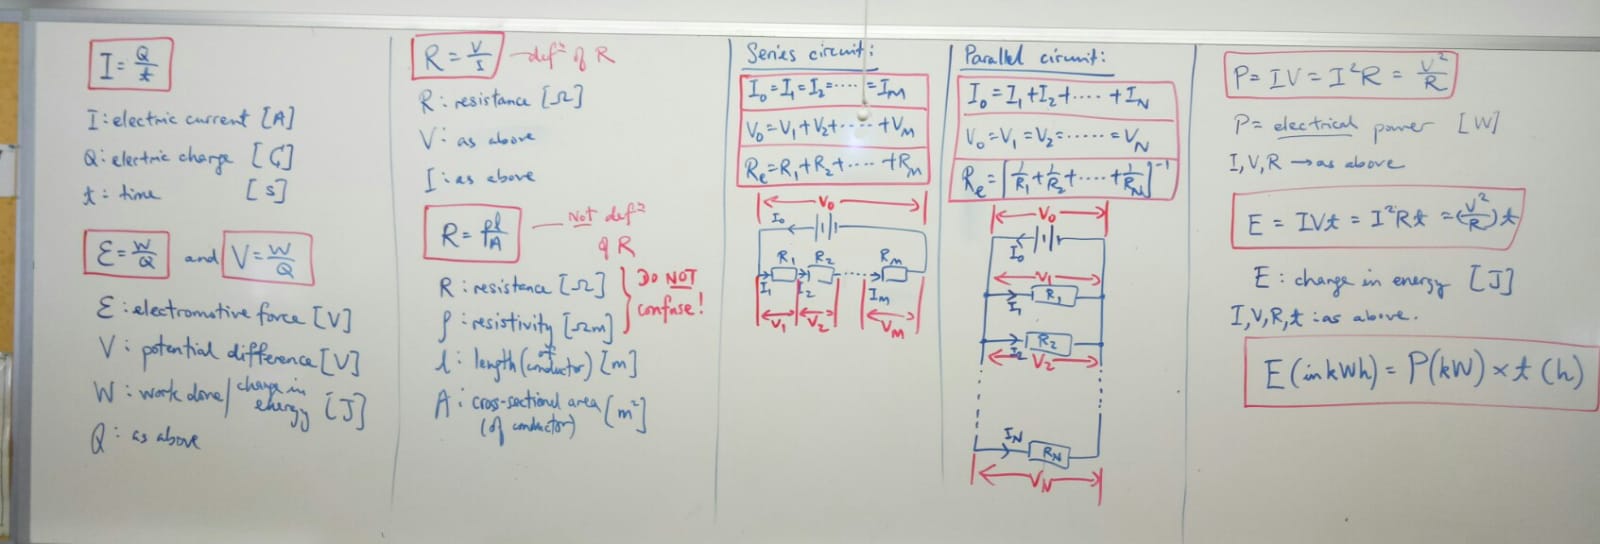 I = Q/t
I : electric current [A]
Q : electric charge [C]
t : time [s]
Ɛ = W/Q and V = W/Q
Ɛ : electromotive force [V]
V : potential difference [V]
W : work done / change in energy [J]
Q : as above
R = V/I — defⁿ of R
R : resistance [Ω]
V : as above
I : as above
R = ρl/A — Not defⁿ of R
R : resistance [Ω]
ρ : resistivity [Ωm]
DO NOT confuse!
l : length (of conductor) [m]
A : cross-sectional area [m²]
(of conductor)
Series circuit:
I₀ = I₁ = I₂ = ····· = I_M
V₀ = V₁ + V₂ + ····· + V_M
Rₑ = R₁ + R₂ + ···· + R_M
V₀
I₀
R₁ R₂ ····· R_M
I₁ I₂ I_M
V₁ V₂ V_M
Parallel circuit:
I₀ = I₁ + I₂ + ····· + I_N
V₀ = V₁ = V₂ = ······ = V_N
Rₑ = [1/R₁ + 1/R₂ + ···· + 1/R_N]⁻¹
V₀
I₀
V₁
I₁ R₁
I₂ R₂
V₂
I_N R_N
V_N
P = IV = I²R = V²/R
P = electrical power [W]
I, V, R → as above
E = IVt = I²Rt = (V²/R)t
E : change in energy [J]
I, V, R, t : as above.
E (in kWh) = P(kW) × t (h)